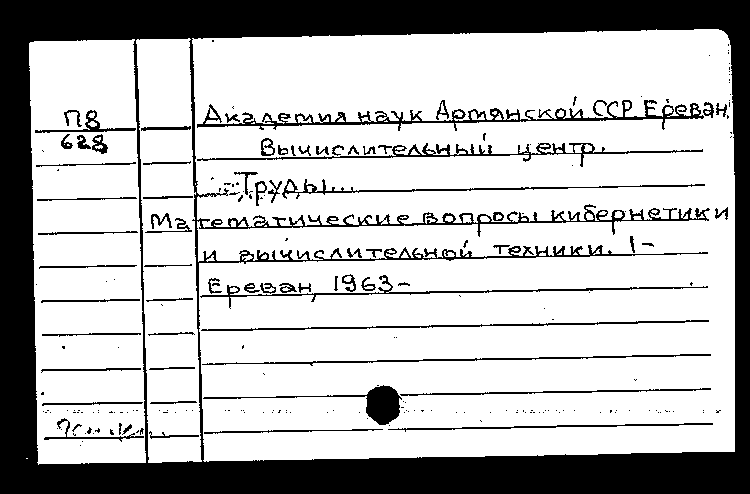 П8 Академия наук Армянской ССР. Ереван.
628 Вычислительный центр.
Труды...
Математические вопросы кибернетики
и вычислительной техники. 1-
Ереван, 1963-